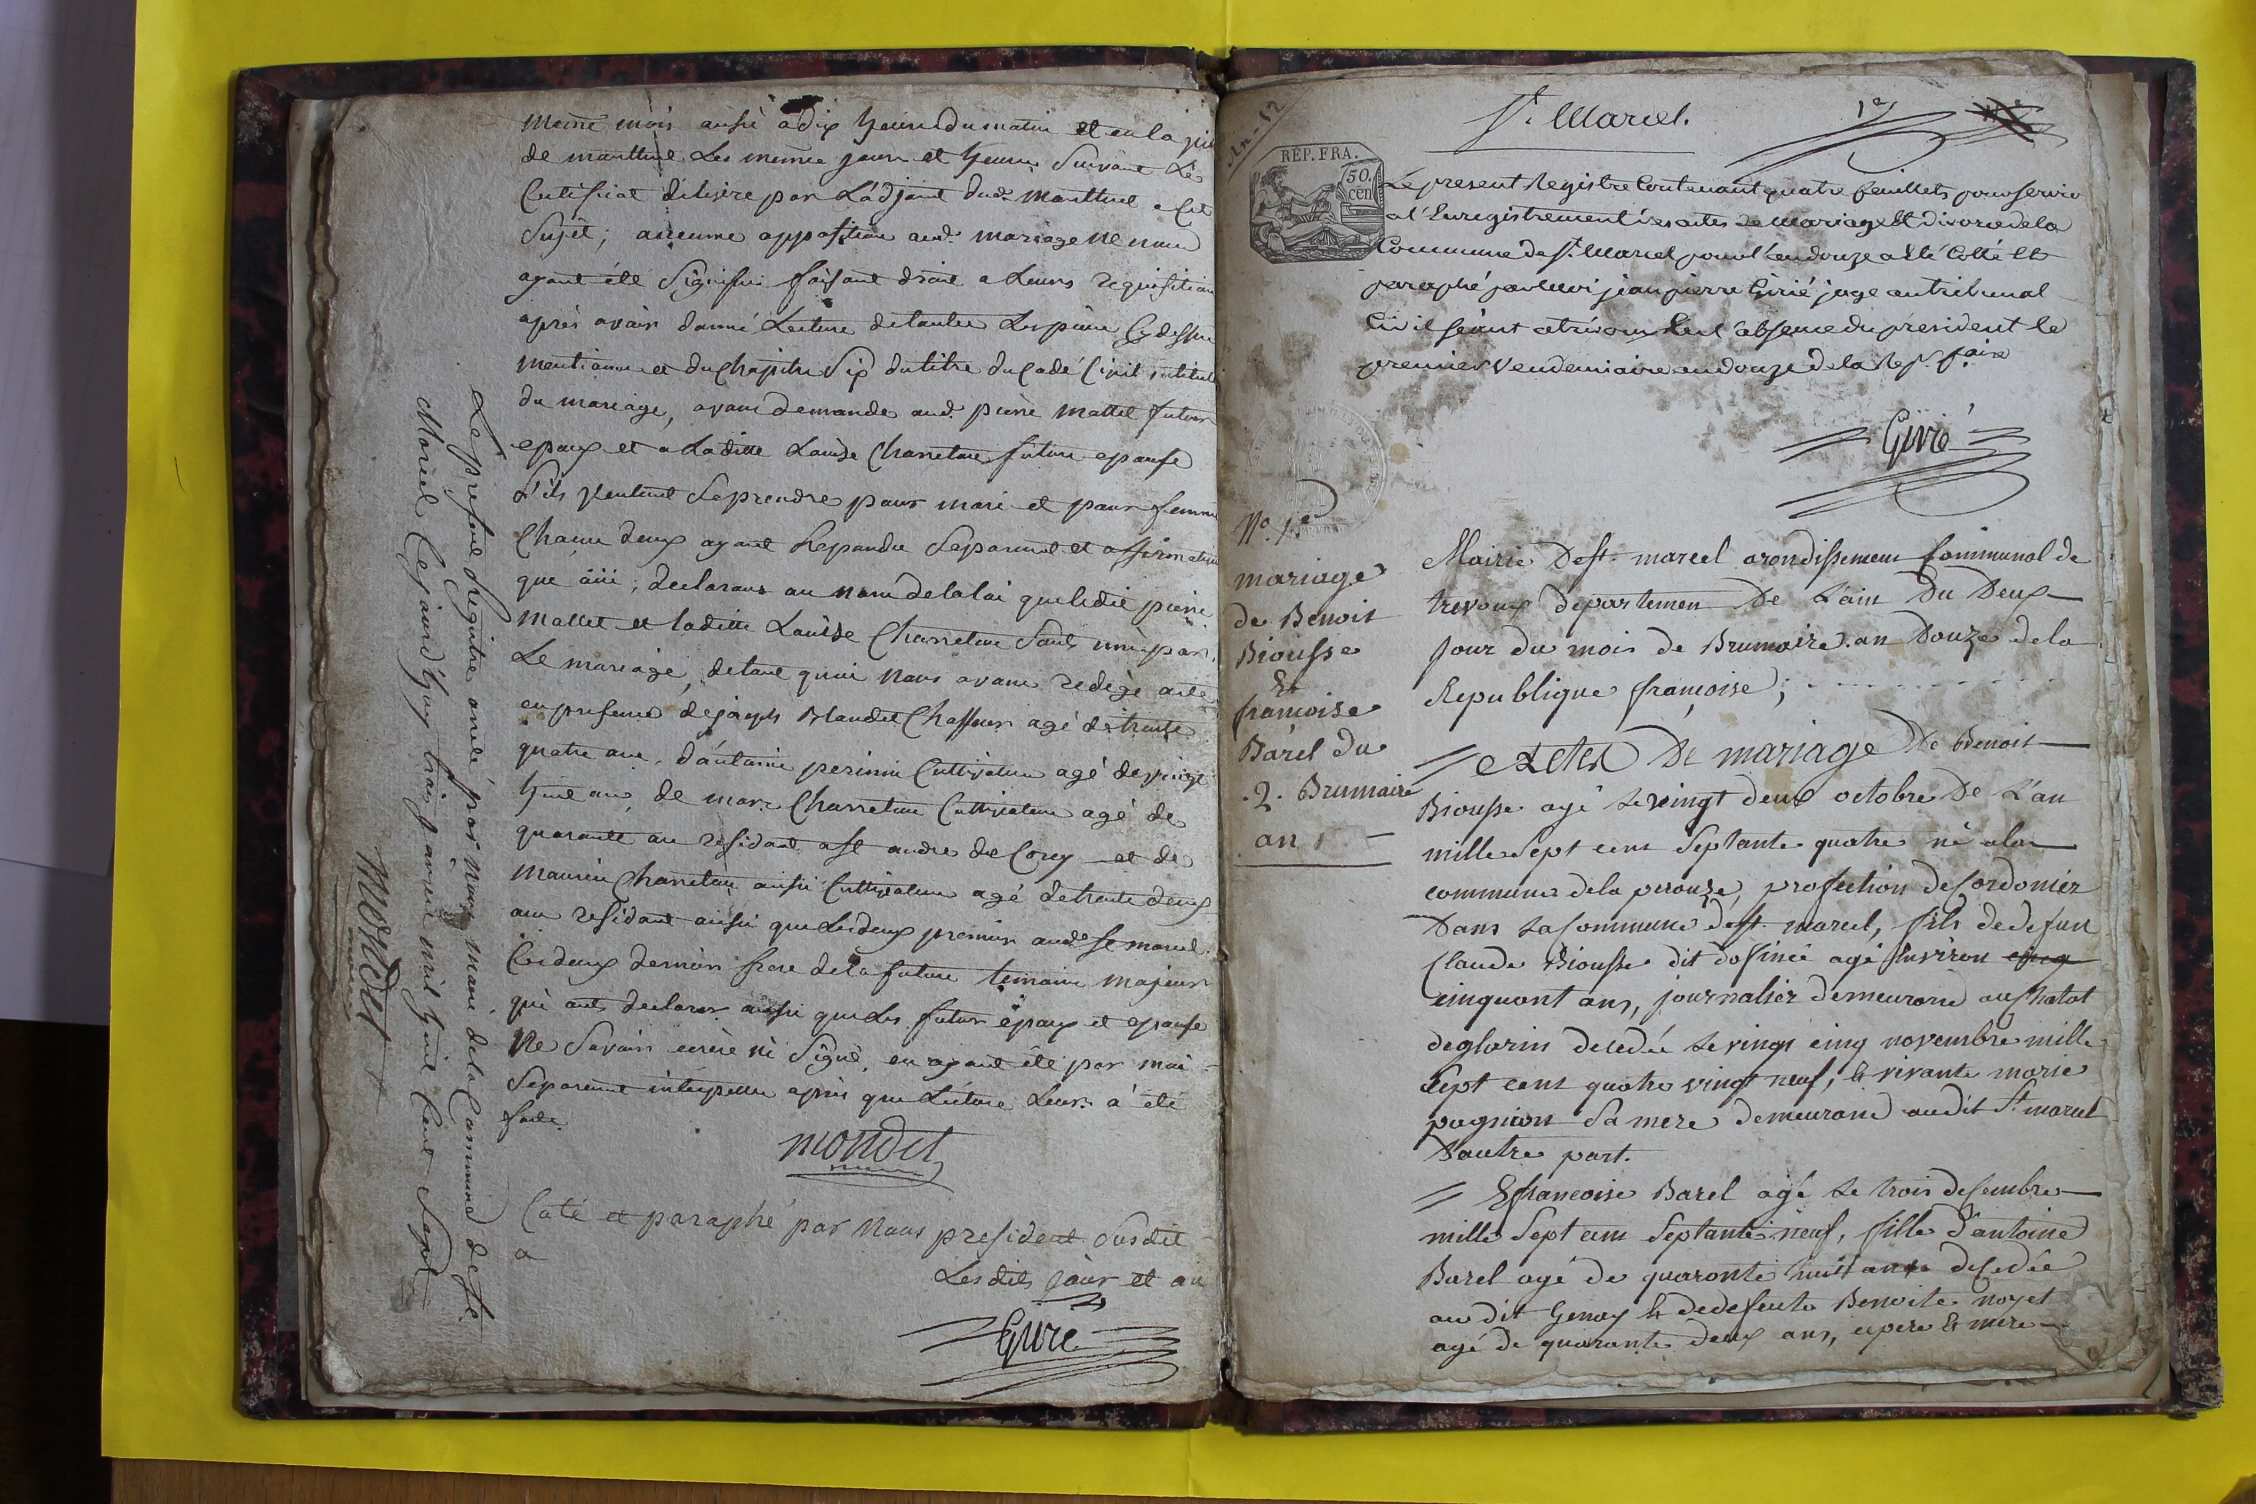 meme mois aussi a dix heure du matin et en la
de manttuel Les meme jour et heure suivant Le
Certificat délivre par L'adjoint dud. manttuel a Cet
Sujet; aucune opposition aud. mariage ne nous
ayant été Signifié faisant droit a Leurs requisition
après avoir donné Lecture de toutes Les pieces Cy dessus
mentionné et du Chapitre Six du titre du Code Civil intitulé
du mariage, avons demandé aud. pierre mattel futur
epoux et a Laditte Louise Charretone future epouse
S'ils veulent Se prendre pour mari et pour femme
Chacun deux ayant Repondu Separement et affirmative
que oüi; declarons au nom de la loi que ledit pierre
mallet et laditte Louise Charretone Sont unis par
Le mariage, de tout quoi Nous avons redigé acte
en presence de joseph Blandet Chasseur agé de trente
quatre ans, d'antoine perinin Cultivateur agé de vingt
huit ans, de marc Charretone Cultivateur agé de
quarante an residant a St andre de Corcy et de
maurin Charretone aussi Cultivateur agé de trente deux
ans residant ainsi que Les deux premier aud. St marcel
Les deux dernier frere de la future temoins majeurs
qui ont declarer aussi que Les futur epoux et epouse
Ne Savoir écrire ni Signé, en ayant été par moi
Separement interpellé après que Lecture Leur a été
faite.
mondet
Coté et paraphé par Nous president Susdit
a
Lesdits jour et an
Giire
Le present Registre arreté par Nous maire de la Commune de St
Marcel Cejourd'huy trois janvier mil huit Cent Sept
Mondet
maire
An - 12
St. Marcel.
1er
REP. FRA.
50. cen
Le present Registre Contenant quatre feuillets pour servir
a l'Enregistrement des actes de Mariage Et divorce de la
Commune de St. Marcel pour l'an douze a Eté Cotté Et
paraphé par moi jean pierre Girié juge au tribunal
Civil séant a trevoux En l'absence du president le
premier Vendemiaire an douze de la Rep. f.aise
Girié
No. 1er
mariage
de Benoit
Biousse
Et
francoise
Barel du
.2. Brumaire
an
Mairie De St. marcel arondissement Communal de
trevoux departemen De L'ain Du Deux
Jour du mois de Brumaire an Douze de la
Republique françoise;
Actes De mariage De Benoit
Biousse agé Le vingt deux octobre De L'an
mille Sept cens Septante quatre né a la
commune de la perouze, profection de Cordonier
Dans La Commune de St. marcel, fils de defun
Claude Biousse dit dofinée agé Environ
cinquant ans, journalier demeurans au Chatat
de glarins decedée Le vingt cinq novembre mille
Sept cens quatre vingt neuf, Et vivante marie
pagnion Sa mere demeurand audit St. marcel
D'autre part.
Et francoise Barel agé Le trois desembre
mille Sept cens Septante neuf, fille D'antoine
Barel agé de quaronte huit ans desedée
au dit Genay Et de defeunte Benoite noyet
agé de quarante deux ans, cepere Et mere